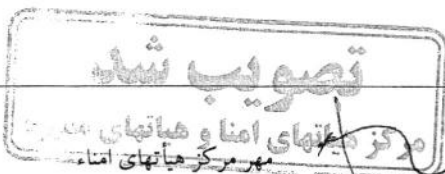 تصویب شد
مرکز هیأتهای امنا و هیأتهای
مهر مرکز هیأتهای امناء